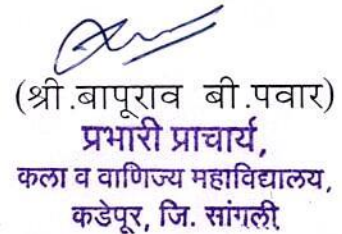 (श्री.बापूराव बी.पवार)
प्रभारी प्राचार्य,
कला व वाणिज्य महाविद्यालय,
कडेपूर, जि. सांगली